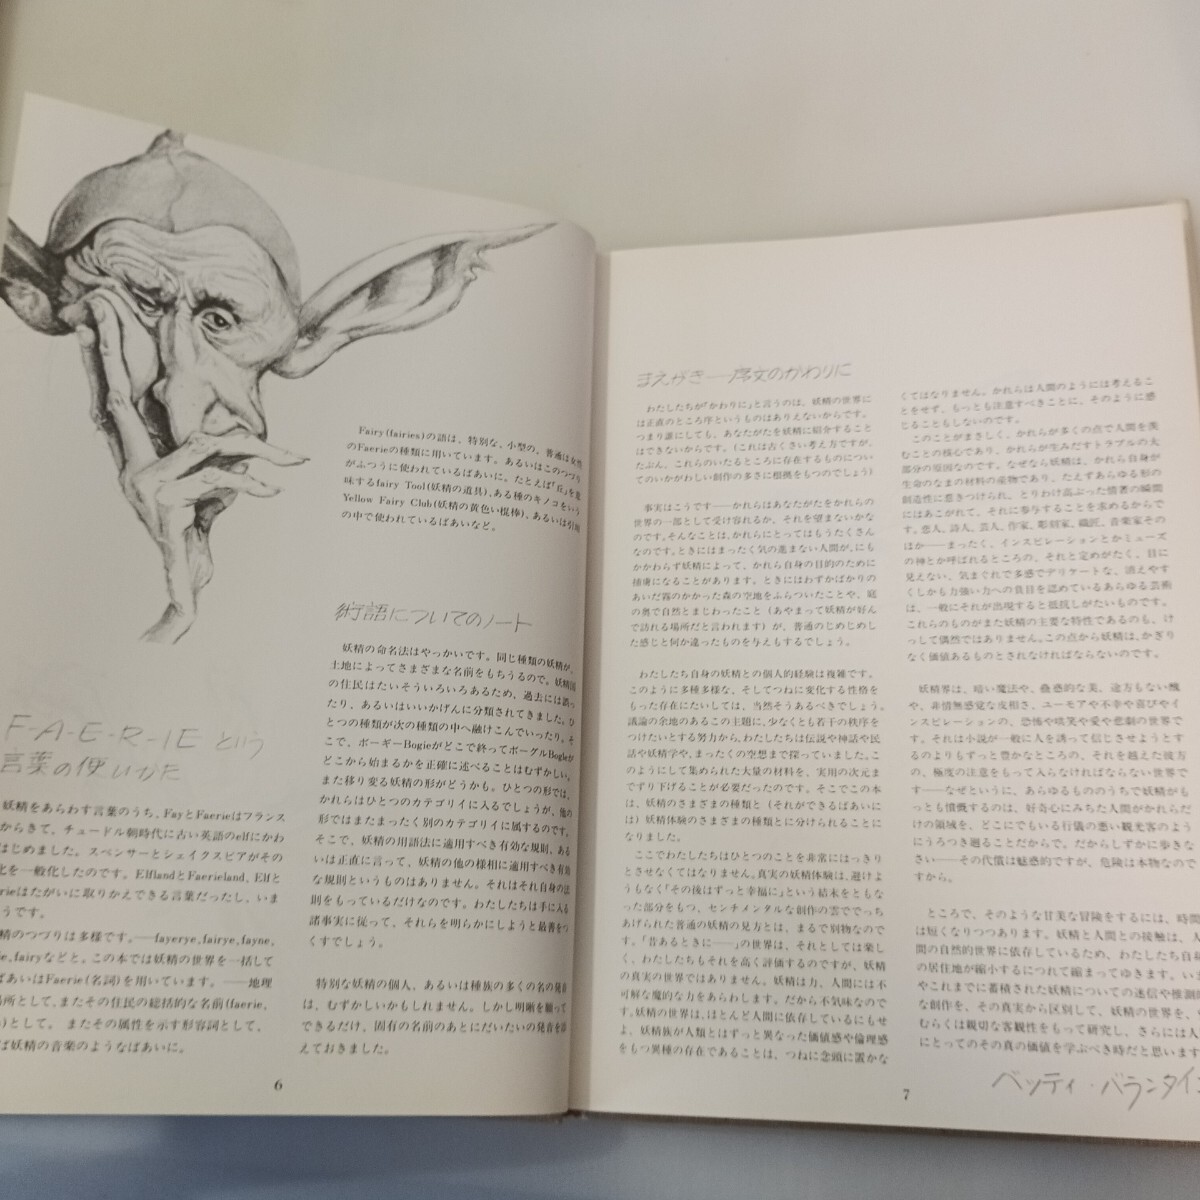 F-A-E-R-IE という
言葉の使いかた
妖精をあらわす言葉のうち、FayとFaerieはフランス
からきて、チュードル朝時代に古い英語のelfにかわ
はじめました。スペンサーとシェイクスピアがその
化を一般化したのです。ElflandとFaerieland、Elfと
erieはたがいに取りかえできる言葉だったし、いま
うです。
精のつづりは多様です。——fayerye, fairye, fayne,
ie, fairyなどと。この本では妖精の世界を一括して
ばあいはFaerie(名詞)を用いています。——地理
場所として、またその住民の総括的な名前(faerie,
)として。またその属性を示す形容詞として、
ば妖精の音楽のようなばあいに。
Fairy(fairies)の語は、特別な、小型の、普通は女性
のFaerieの種類に用いています。あるいはこのつづり
がふつうに使われているばあいに。たとえば「丘」を意
味するfairy Tool(妖精の道具)、ある種のキノコをいう
Yellow Fairy Club(妖精の黄色い棍棒)、あるいは引用
の中で使われているばあいなど。
術語についてのノート
妖精の命名法はやっかいです。同じ種類の妖精が、
土地によってさまざまな名前をもちうるので。妖精国
の住民はたいそういろいろあるため、過去には誤っ
たり、あるはいいかげんに分類されてきました。ひ
とつの種類が次の種類の中へ融けこんでいったり。そ
こで、ボーギーBogieがどこで終ってボーグルBogleが
どこから始まるかを正確に述べることはむずかしい。
また移り変る妖精の形がどうかも。ひとつの形では、
かれらはひとつのカテゴリイに入るでしょうが、他の
形ではまたまったく別のカテゴリイに属するのです。
そこで、妖精の用語法に適用すべき有効な規則、ある
いは正直に言って、妖精の他の様相に適用すべき有効
な規則というものはありません。それはそれ自身の法
則をもっているだけなのです。わたしたちは手に入る
諸事実に従って、それらを明らかにしようと最善をつ
くすでしょう。
特別な妖精の個人、あるいは種族の多くの名の発音
は、むずかしいかもしれません。しかし明晰を願って
できるだけ、固有の名前のあとにだいたいの発音を添
えておきました。
6
まえがき——序文のかわりに
わたしたちが「かわりに」と言うのは、妖精の世界に
は正直のところ序というものはありえないからです。
つまり誰にしても、あなたがたを妖精に紹介すること
はできないからです。(これは古くさい考え方ですが、
たぶん、これらのいたるところに存在するものについ
てのいかがわしい創作の多さに根拠をもつのでしょう)
事実はこうです——かれらはあなたがたをかれらの
世界の一部として受け容れるか、それを望まないかな
のです。そんなことは、かれらにとってはもうたくさん
なのです。ときにはまったく気の進まない人間が、にも
かかわらず妖精によって、かれら自身の目的のために
捕虜になることがあります。ときにはわずかばかりの
あいだ霧のかかった森の空地をふらついたことや、庭
の奥で自然とまじわったこと(あやまって妖精が好ん
で訪れる場所だと言われます)が、普通のじめじめし
た感じと何か違ったものを与えもするでしょう。
わたしたち自身の妖精との個人的経験は複雑です。
このように多種多様な、そしてつねに変化する性格を
もった存在にたいしては、当然そうあるべきでしょう。
議論の余地のあるこの主題に、少なくとも若干の秩序を
つけたいとする努力から、わたしたちは伝説や神話や民
話や妖精学や、まったくの空想まで探っていました。こ
のようにして集められた大量の材料を、実用の次元ま
でずり下げることが必要だったのです。そこでこの本
は、妖精のさまざまの種類と(それができるばあいに
は)妖精体験のさまざまの種類とに分けられることに
なりました。
ここでわたしたちはひとつのことを非常にはっきり
とさせなくてはなりません。真実の妖精体験は、避けよ
うもなく「その後はずっと幸福に」という結末をともな
った部分をもつ、センチメンタルな創作の雲でてっち
あげられた普通の妖精の見方とは、まるで別物なので
す。「昔あるときに——」の世界は、それとしては楽し
く、わたしたちもそれを高く評価するのですが、妖精
の真実の世界ではありません。妖精は力、人間には不
可解な魔的な力をあらわします。だから不気味なので
す。妖精の世界は、ほとんど人間に依存しているにもせ
よ、妖精族が人類とはずっと異なった価値感や倫理感
をもつ異種の存在であることは、つねに念頭に置かな
くてはなりません。かれらは人間のようには考えるこ
とをせず、もっとも注意すべきことに、そのように感
じることもしないのです。
このことがまさしく、かれらが多くの点で人間を羨
むことの核心であり、かれらが生みだすトラブルの大
部分の原因なのです。なぜなら妖精は、かれら自身が
生命のなまの材料の産物であり、たえずあらゆる形の
創造性に惹きつけられ、とりわけ高ぶった情著の瞬間
にはあこがれて、それに参与することを求めるからで
す。恋人、詩人、芸人、作家、彫刻家、織匠、音楽家その
ほか——まったく、インスピレーションとかミューズ
の神とか呼ばれるところの、それと定めがたく、目に
見えない、気まぐれで多感でデリケートな、消えやす
くしかも力強い力への負目を認めているあらゆる芸術
は、一般にそれが出現すると抵抗しがたいものです。
これらのものがまた妖精の主要な特性であるのも、け
っして偶然ではありません。この点から妖精は、かぎり
なく価値あるものとされなければならないのです。
妖精界は、暗い魔法や、蠱惑的な美、途方もない醜
や、非情無感覚な皮相さ、ユーモアや不幸や喜びやイ
ンスピレーションの、恐怖や咲笑や愛や悲劇の世界で
す。それは小説が一般に人を誘って信じさせようとす
るのよりもずっと豊かなところの、それを越えた彼方
の、極度の注意をもって入らなければならない世界で
す——なぜというに、あらゆるもののうちで妖精がも
っとも憤慨するのは、好奇心にみちた人間がかれらだ
けの領域を、どこにでもいる行儀の悪い観光客のよう
にうろつき廻ることだからで、だからしずかに歩きな
さい——その代償は魅惑的ですが、危険は本物なので
すから。
ところで、そのような甘美な冒険をするには、時間
は短くなりつつあります。妖精と人間との接触は、人
間の自然的世界に依存しているため、わたしたち自身
の居住地が縮小するにつれて縮まってゆきます。いま
やこれまでに蓄積された妖精についての迷信や推測的
な創作を、その真実から区別して、妖精の世界を、
むらくは親切な客観性をもって研究し、さらには人
にとってのその真の価値を学ぶべき時だと思います
ベッティ・バランタイン
7